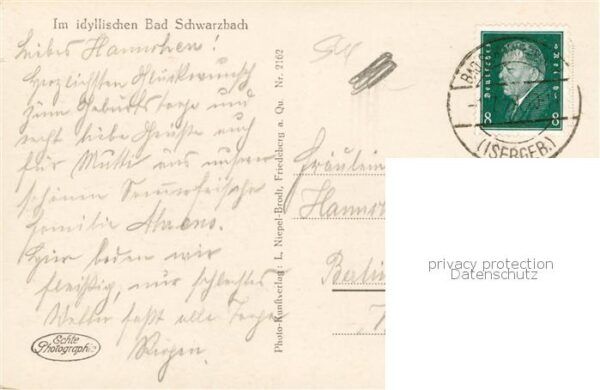 Im idyllischen Bad Schwarzbach
Liebes Hannchen!
Herzlichsten Glückwunsch
zum Geburtstage und
recht liebe Grüße auch
für Mutti aus unserer
schönen Sommerfrische
Familie Ahrens.
Hier baden wir
fleißig, nur schlechtes
Wetter fast alle Tage
Regen.
Echte
Photographie
Photo-Kunstverlag: L. Niepel-Brodt, Friedeberg a. Qu. Nr. 2162
Deutsches Reich
8 8
BAD
(ISERGEB.)
Fräulein
Berlin
privacy protection
Datenschutz